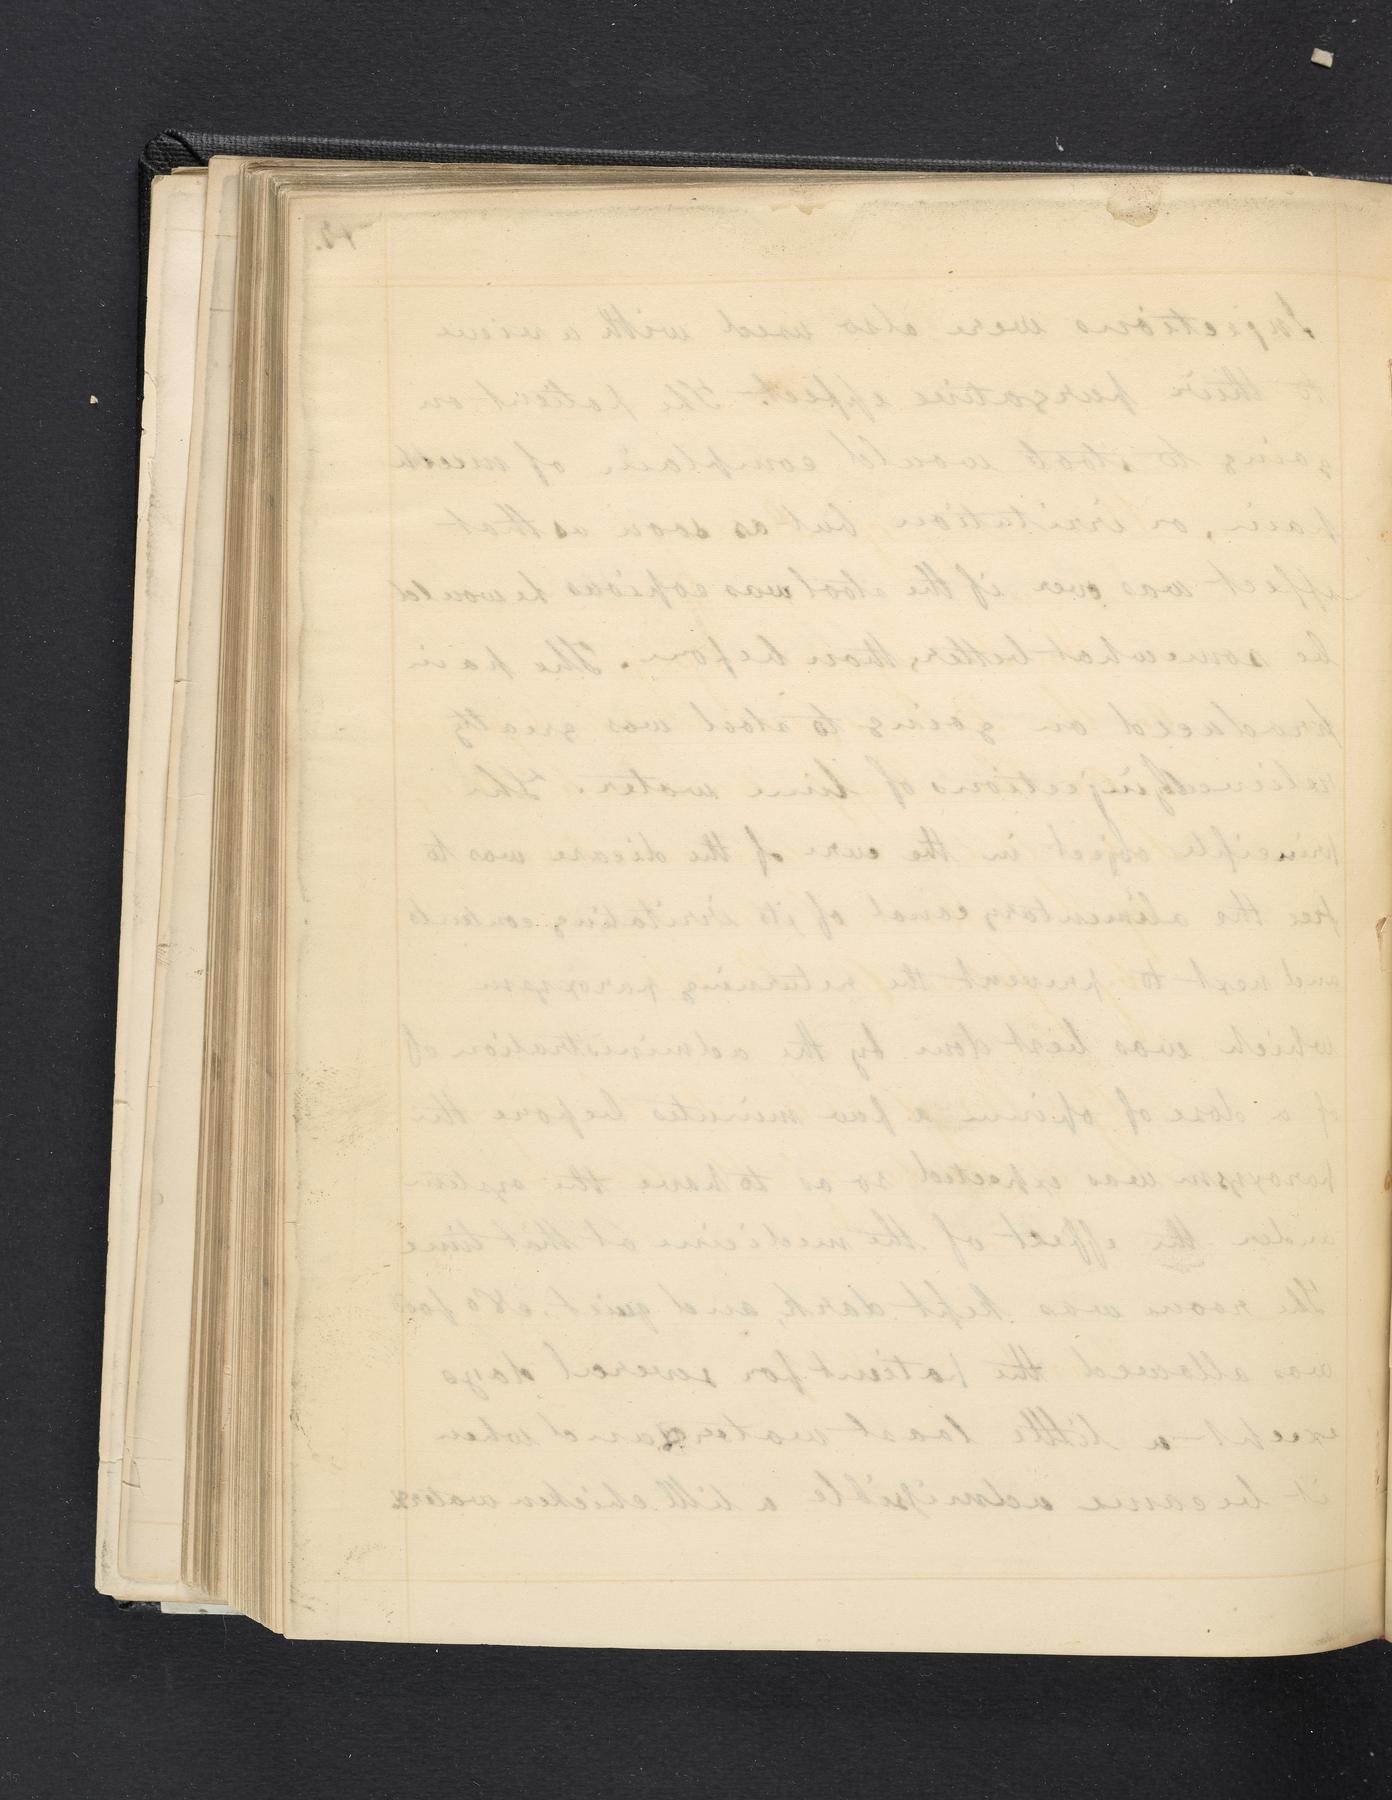 12.
Injections were also used with a view
to their purgative effect. The patient on
going to stool would complain of much
pain, or irritation, but as soon as that
effect was over if the stool was copious he would
be somewhat better, than before. The pain
produced on going to stool was greatly
relieved by injections of lime water. The
principle object in the cure of the disease was to
free the alimentary canal of its irritating contents
and next to prevent the returning paroxysm
which was best done by the administration of
of a dose of opium a few minutes before the
paroxysm was expected so as to have the system
under the effect of the medicine at that time
The room was kept dark, and quiet. No food
was allowed the patient for several days
except a little toast water, and when
it became admissible a little chicken water,